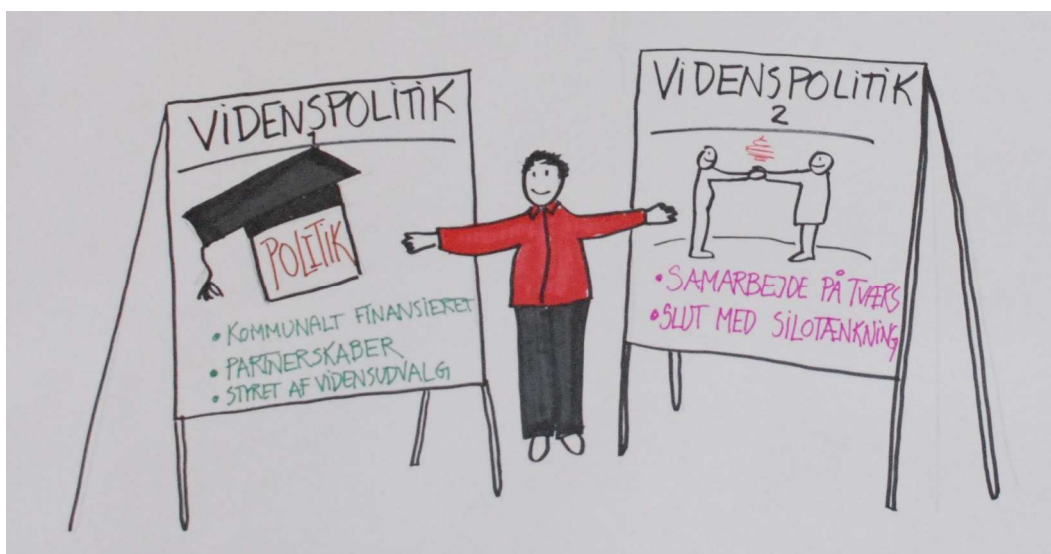 VIDENSPOLITIK
1
POLITIK
• KOMMUNALT FINANSIERET
• PARTNERSKABER
• STYRET AF VIDENSUDVALG
VIDENSPOLITIK
2
• SAMARBEJDE PÅ TVÆRS
• SLUT MED SILOTÆNKNING